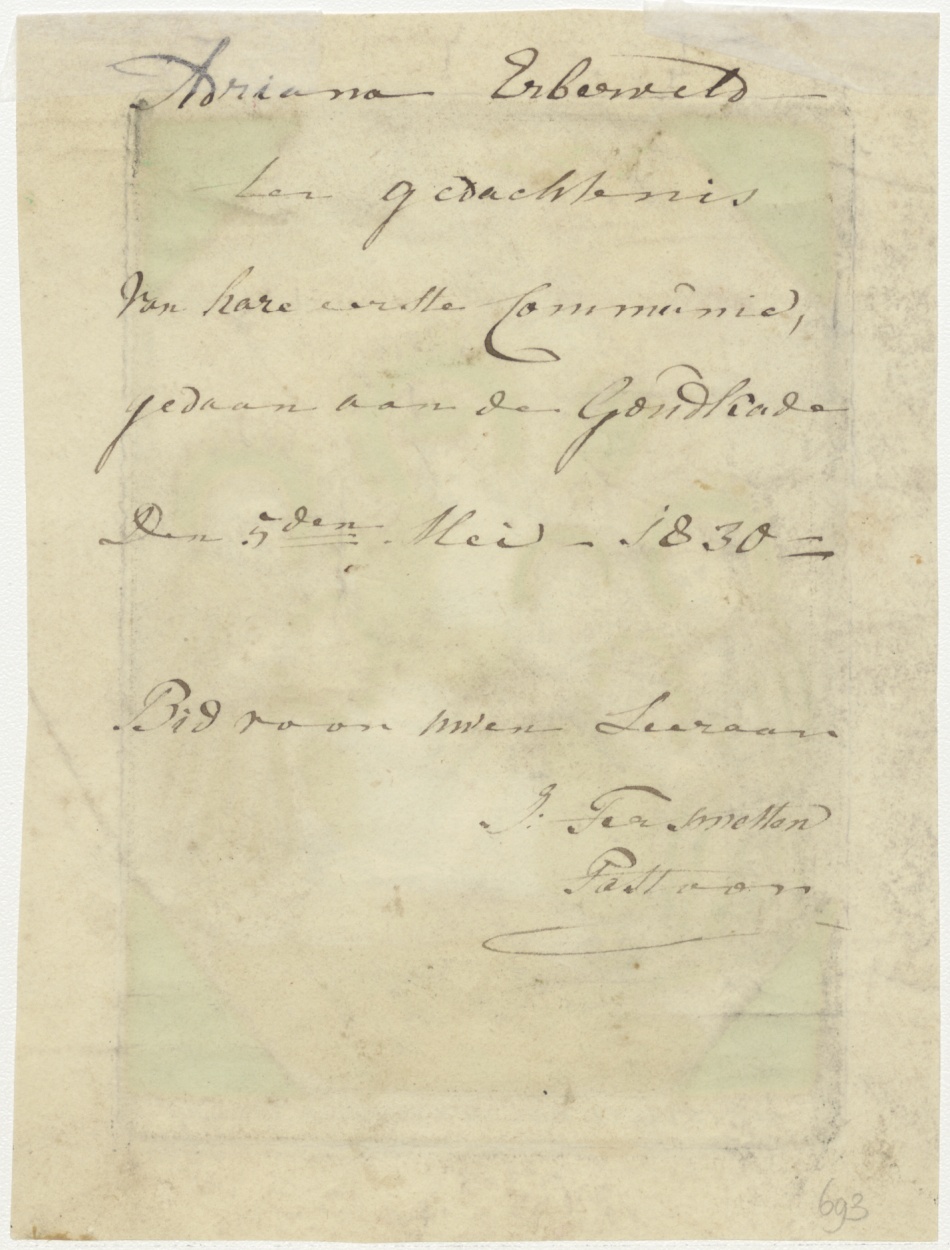 Adriana Erberveld
ter gedachtenis
Van hare eerste Communie,
gedaan aan de Goudkade
Den 5den Mei - 1830 =
Bid voor uwen Leeraar
J: Ter smetten
Pastoor
693